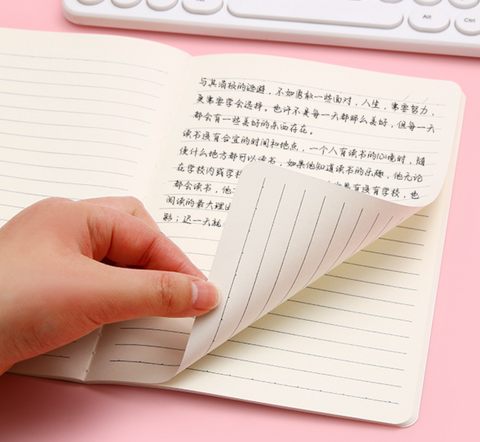 与其消极的逃避，不如勇敢一些面对，人生，需要努力，
更需要学会选择。也许不是每一天都那么美好，但每一天
都会有一些美好的东西存在。
读书没有合宜的时间和地点，一个人有读书的心境时，随
便什么地方都可以读书，如果他知道读书的乐趣，他无论
在学校内或学校
都会读书，他 有没有学校，也
阅读的最大理由
影；迟一天就
Alt
Ctrl